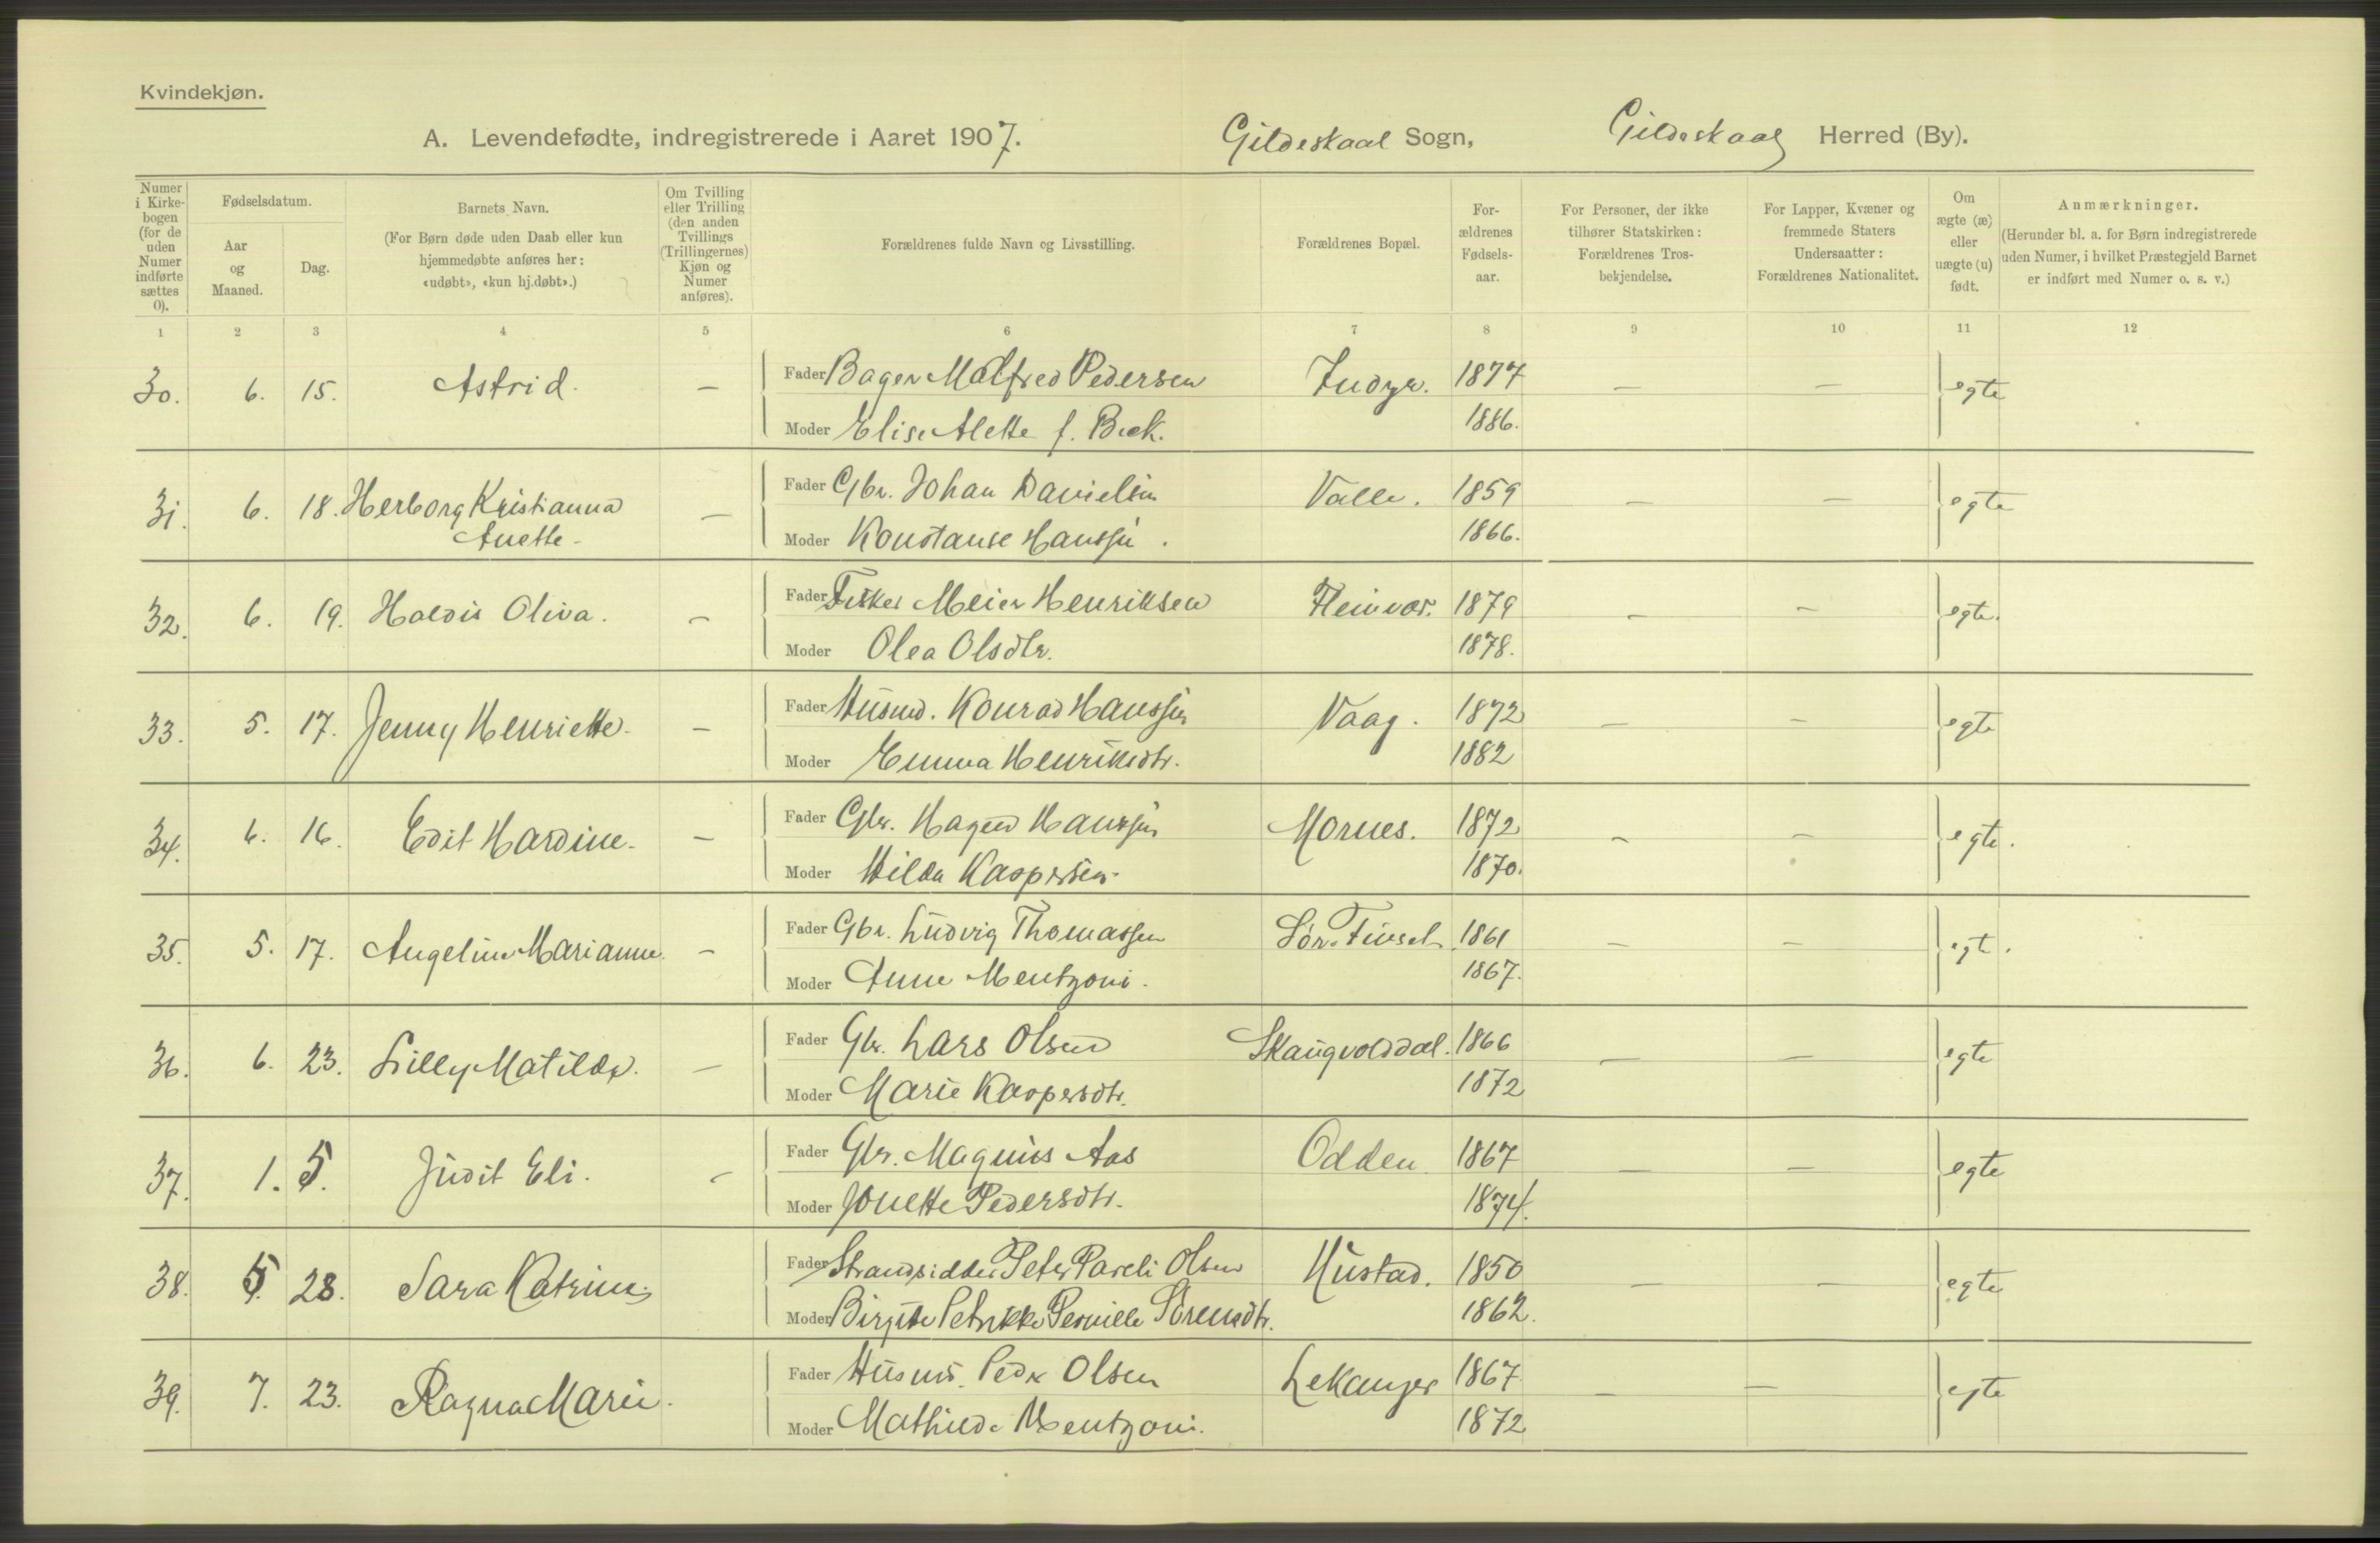 Kvindekjøn.
A. Levendefødte, indregistrerede i Aaret 1907. Gildeskaal Sogn, Gildeskaal Herred (By).
Numer i Kirkebogen (for de uden Numer indførte sættes 0).
Fødselsdatum.
Aar og Maaned.
Dag.
Barnets Navn.
(For Børn døde uden Daab eller kun hjemmedøbte anføres her: «udøbt», «kun hj.døbt».)
Om Tvilling eller Trilling (den anden Tvillings (Trillingernes) Kjøn og Numer anføres).
Forældrenes fulde Navn og Livsstilling.
Forældrenes Bopæl.
Forældrenes Fødselsaar.
For Personer, der ikke tilhører Statskirken: Forældrenes Trosbekjendelse.
For Lapper, Kvæner og fremmede Staters Undersaatter: Forældrenes Nationalitet.
Om ægte (æ) eller uægte (u) født.
Anmærkninger.
(Herunder bl. a. for Børn indregistrerede uden Numer, i hvilket Præstegjeld Barnet er indført med Numer o. s. v.)
1 2 3 4 5 6 7 8 9 10 11 12
30. 6. 15. Astrid. — Fader Bager Malfred Pedersen Indyr. 1877 — — egte
Moder Elise Alette f. Beck. 1886.
31. 6. 18. Herborg Kristianna — Fader Gbr. Johan Danielsen Valle. 1859 — — egte
Anette - Moder Konstanse Hanssen. 1866.
32. 6. 19. Haldis Oliva. — Fader Fisker Meier Henriksen Fleinvær. 1879 — — egte.
Moder Olea Olsdtr. 1878.
33. 5. 17. Jenny Henriette. — Fader Husmd. Konrad Hanssen Vaag. 1872 — — egte
Moder Emma Henriksdtr. 1882
34. 6. 16. Edit Hardine. — Fader Gbr. Hagen Hanssen Mornes. 1872 — — egte.
Moder Hilda Kaspersen. 1870.
35. 5. 17. Angeline Marianne. — Fader Gbr. Ludvig Thomassen Sør-Finset 1861 — — egte.
Moder Anne Mentzoni. 1867.
36. 6. 23. Lilly Matilde. — Fader Gbr. Lars Olsen Skaugvolddal. 1866 — — egte
Moder Marie Kaspersdtr. 1872
37. 1. 5. Judit Eli. — Fader Gbr. Magnus Aas Odden. 1867 — — egte
Moder Jonette Pedersdtr. 1874.
38. 5. 28. Sara Katrine Fader Strandsidder Peter Pareli Olsen Hustad. 1850 — — egte
Moder Birgitte Petrikke Pernille Sørensdtr. 1862.
39. 7. 23. Ragna Marie. Fader Husmd. Peder Olsen Lekanger 1867. — — egte
Moder Mathinde Mentzoni. 1872